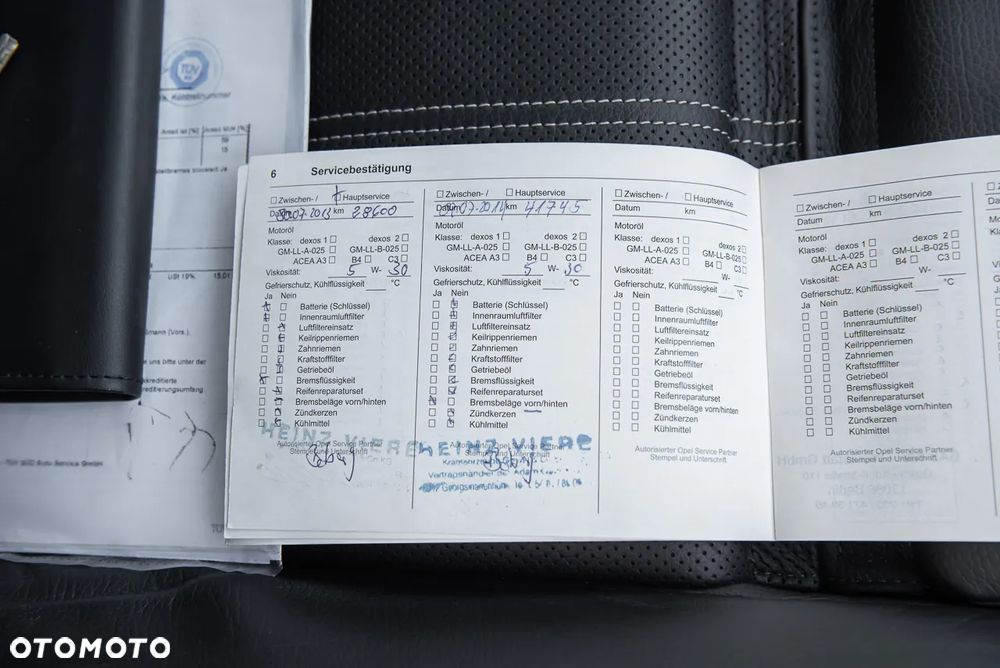 TÜV
Kontrollnummer
6 Servicebestätigung
Zwischen- / Hauptservice
Datum 30.07.2013 km 28600
Motoröl
Klasse: dexos 1 dexos 2
GM-LL-A-025 GM-LL-B-025
ACEA A3 B4 C3
Viskosität: 5 W- 30
Gefrierschutz, Kühlflüssigkeit °C
Ja Nein
Batterie (Schlüssel)
Innenraumluftfilter
Luftfiltereinsatz
Keilrippenriemen
Zahnriemen
Kraftstofffilter
Getriebeöl
Bremsflüssigkeit
Reifenreparaturset
Bremsbeläge vorn/hinten
Zündkerzen
Kühlmittel
HEINZ VIERE
Autorisierter Opel Service Partner
Stempel und Unterschrift
Zwischen- / Hauptservice
Datum 07.2014 km 41745
Motoröl
Klasse: dexos 1 dexos 2
GM-LL-A-025 GM-LL-B-025
ACEA A3 B4 C3
Viskosität: 5 W- 30
Gefrierschutz, Kühlflüssigkeit °C
Ja Nein
Batterie (Schlüssel)
Innenraumluftfilter
Luftfiltereinsatz
Keilrippenriemen
Zahnriemen
Kraftstofffilter
Getriebeöl
Bremsflüssigkeit
Reifenreparaturset
Bremsbeläge vorn/hinten
Zündkerzen
Kühlmittel
HEINZ VIERE
Autorisierter Opel Service Partner
Stempel und Unterschrift
Zwischen- / Hauptservice
Datum km
Motoröl
Klasse: dexos 1 dexos 2
GM-LL-A-025 GM-LL-B-025
ACEA A3 B4 C3
Viskosität: W-
Gefrierschutz, Kühlflüssigkeit °C
Ja Nein
Batterie (Schlüssel)
Innenraumluftfilter
Luftfiltereinsatz
Keilrippenriemen
Zahnriemen
Kraftstofffilter
Getriebeöl
Bremsflüssigkeit
Reifenreparaturset
Bremsbeläge vorn/hinten
Zündkerzen
Kühlmittel
Autorisierter Opel Service Partner
Stempel und Unterschrift
Zwischen- / Hauptservice
Datum km
Motoröl
Klasse: dexos 1 dexos 2
GM-LL-A-025 GM-LL-B-025
ACEA A3 B4 C3
Viskosität: W-
Gefrierschutz, Kühlflüssigkeit °C
Ja Nein
Batterie (Schlüssel)
Innenraumluftfilter
Luftfiltereinsatz
Keilrippenriemen
Zahnriemen
Kraftstofffilter
Getriebeöl
Bremsflüssigkeit
Reifenreparaturset
Bremsbeläge vorn/hinten
Zündkerzen
Kühlmittel
Autorisierter Opel Service Partner
Stempel und Unterschrift
OTOMOTO